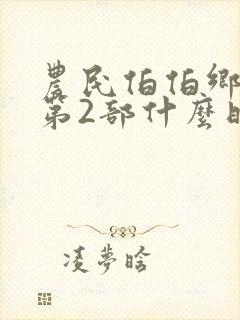 農民伯伯鄉
第2部什麼時
凌夢晗